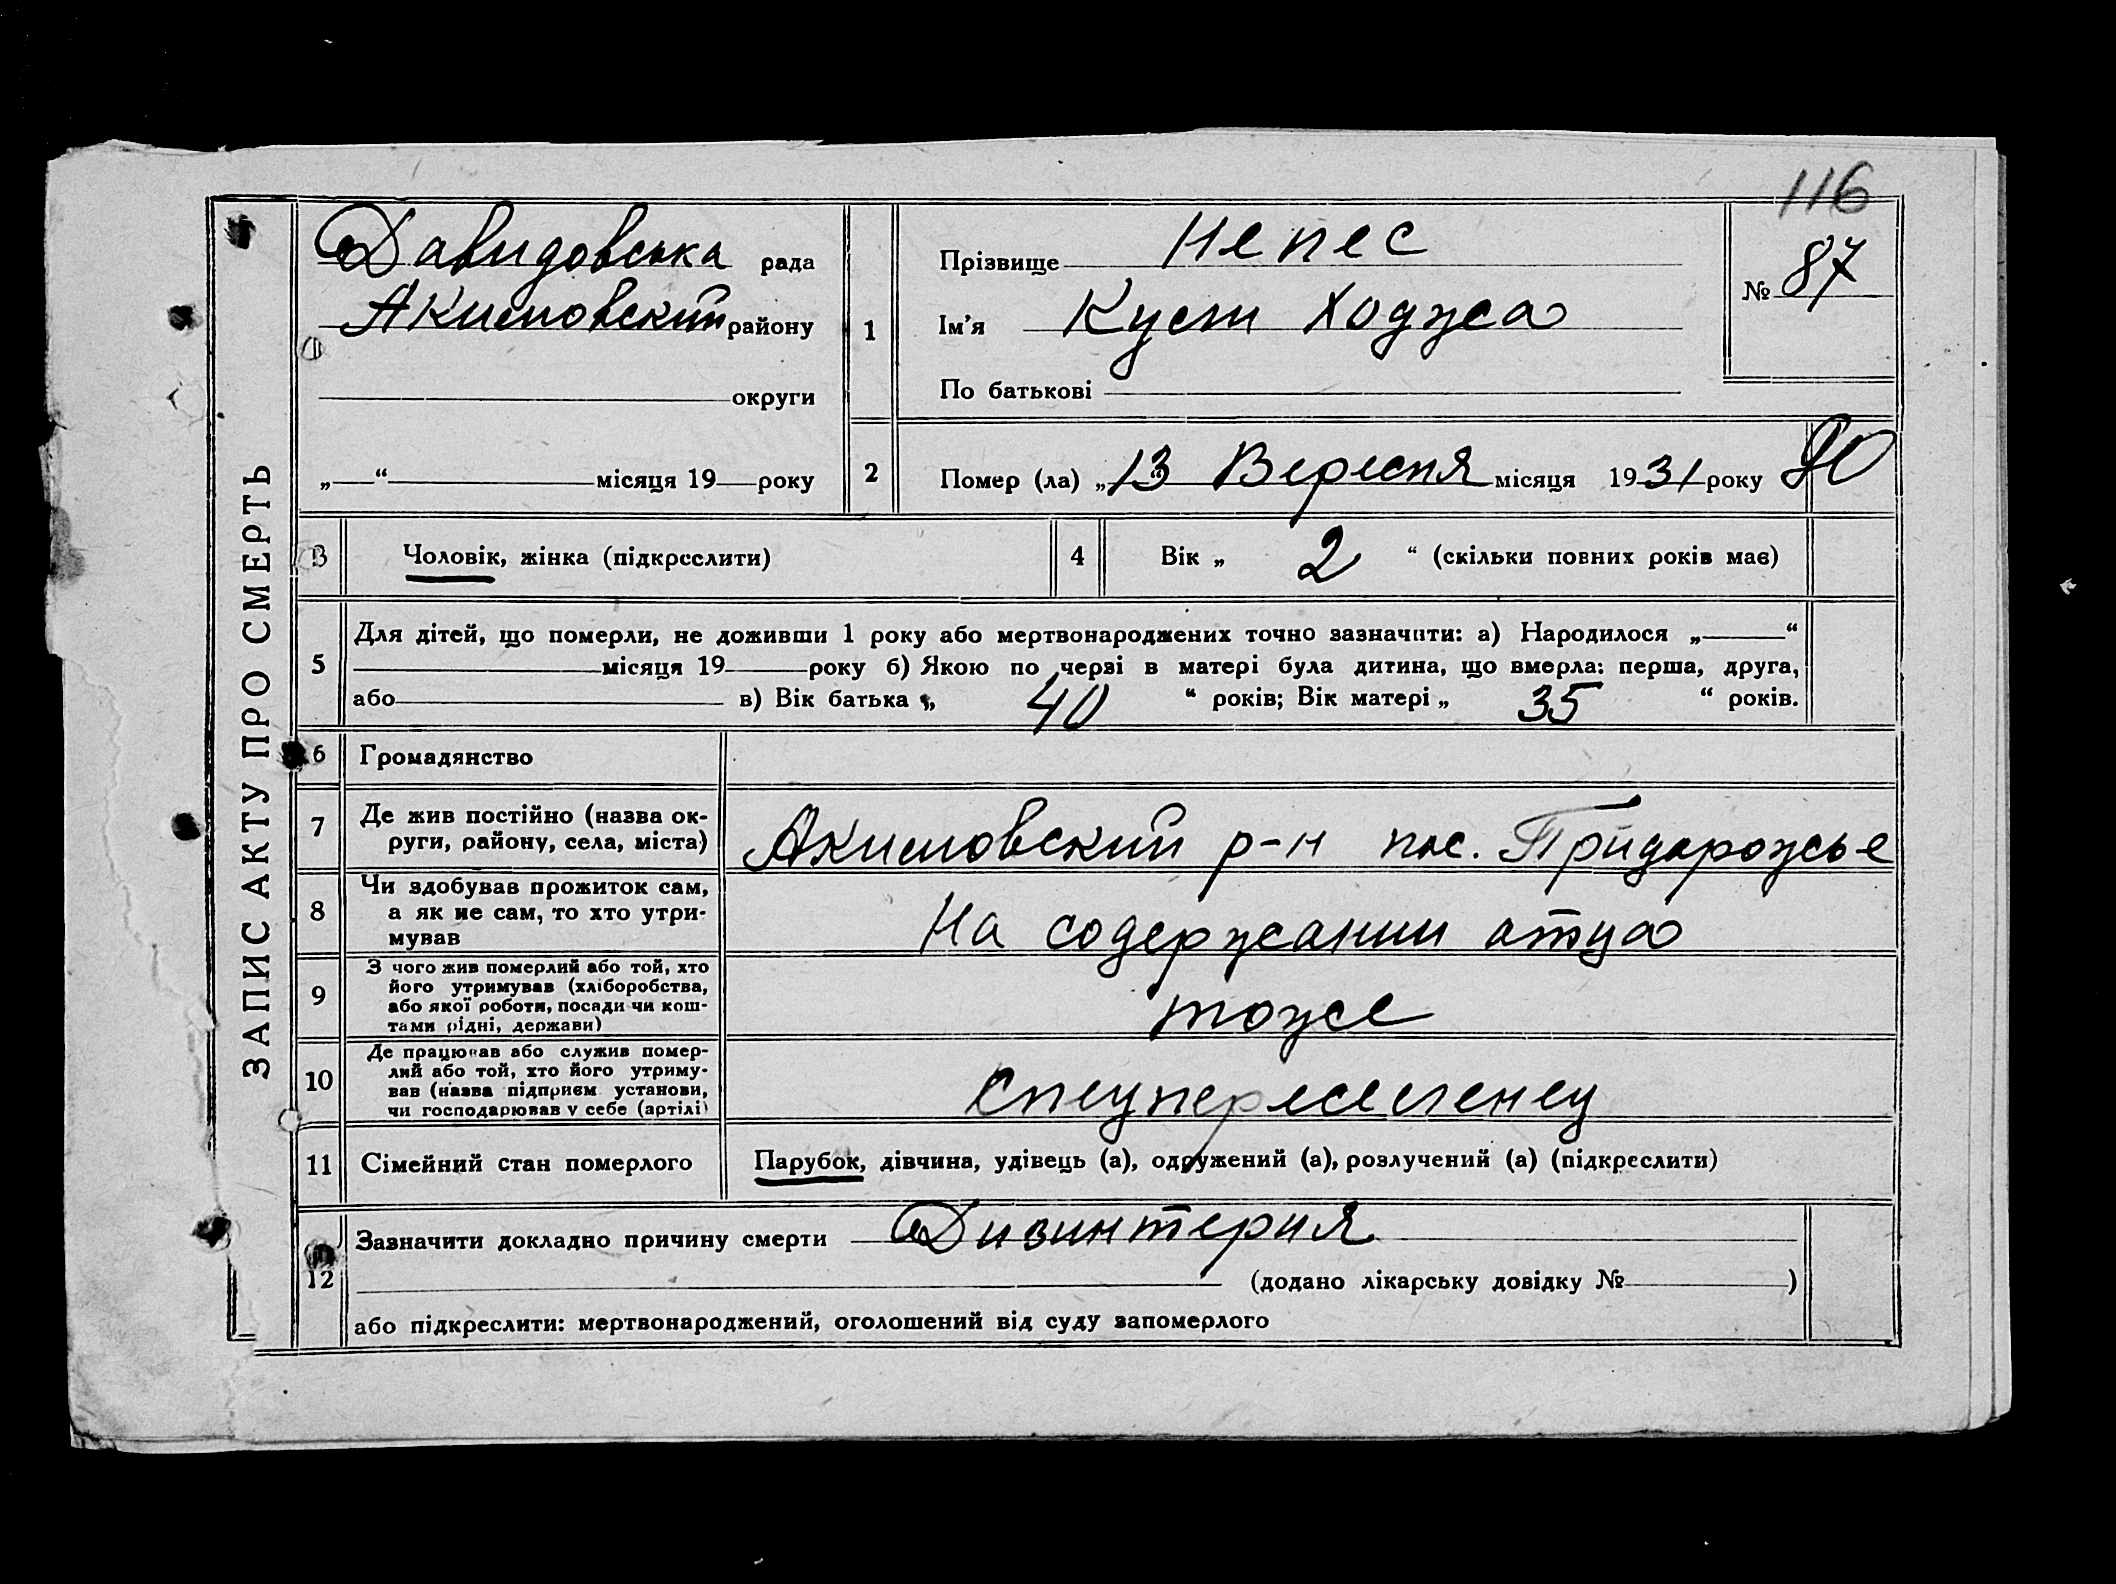 116
ЗАПИС АКТУ ПРО СМЕРТЬ
Давидовська рада
Акимовский району
округи
„ “ місяця 19 року
1
Прізвище Непес
Ім’я Кусти Ходжа
По батькові
№ 87
2
Помер (ла) „13 Вересня місяця 1931 року
3
Чоловік, жінка (підкреслити)
4
Вік „ 2 “ (скільки повних років має)
5
Для дітей, що померли, не доживши 1 року або мертвонароджених точно зазначити: а) Народилося „ “
місяця 19 року б) Якою по черзі в матері була дитина, що вмерла: перша, друга,
або в) Вік батька „ 40 “ років; Вік матері „ 35 “ років.
6
Громадянство
7
Де жив постійно (назва ок-
руги, району, села, міста)
Акимовский р-н пос. Придорожсье
8
Чи здобував прожиток сам,
а як не сам, то хто утри-
мував
На содержании отца
9
З чого жив померлий або той, хто
його утримував (хліборобства,
або якої роботи, посади чи кош-
тами рідні, держави)
тоже
10
Де працював або служив помер-
лий або той, хто його утриму-
вав (назва підприєм установи,
чи господарював у себе (артілі)
Спецпереселенец
11
Сімейний стан померлого
Парубок, дівчина, удівець (а), одружений (а), розлучений (а) (підкреслити)
12
Зазначити докладно причину смерти Дизинтерия
(додано лікарську довідку № )
або підкреслити: мертвонароджений, оголошений від суду запомерлого